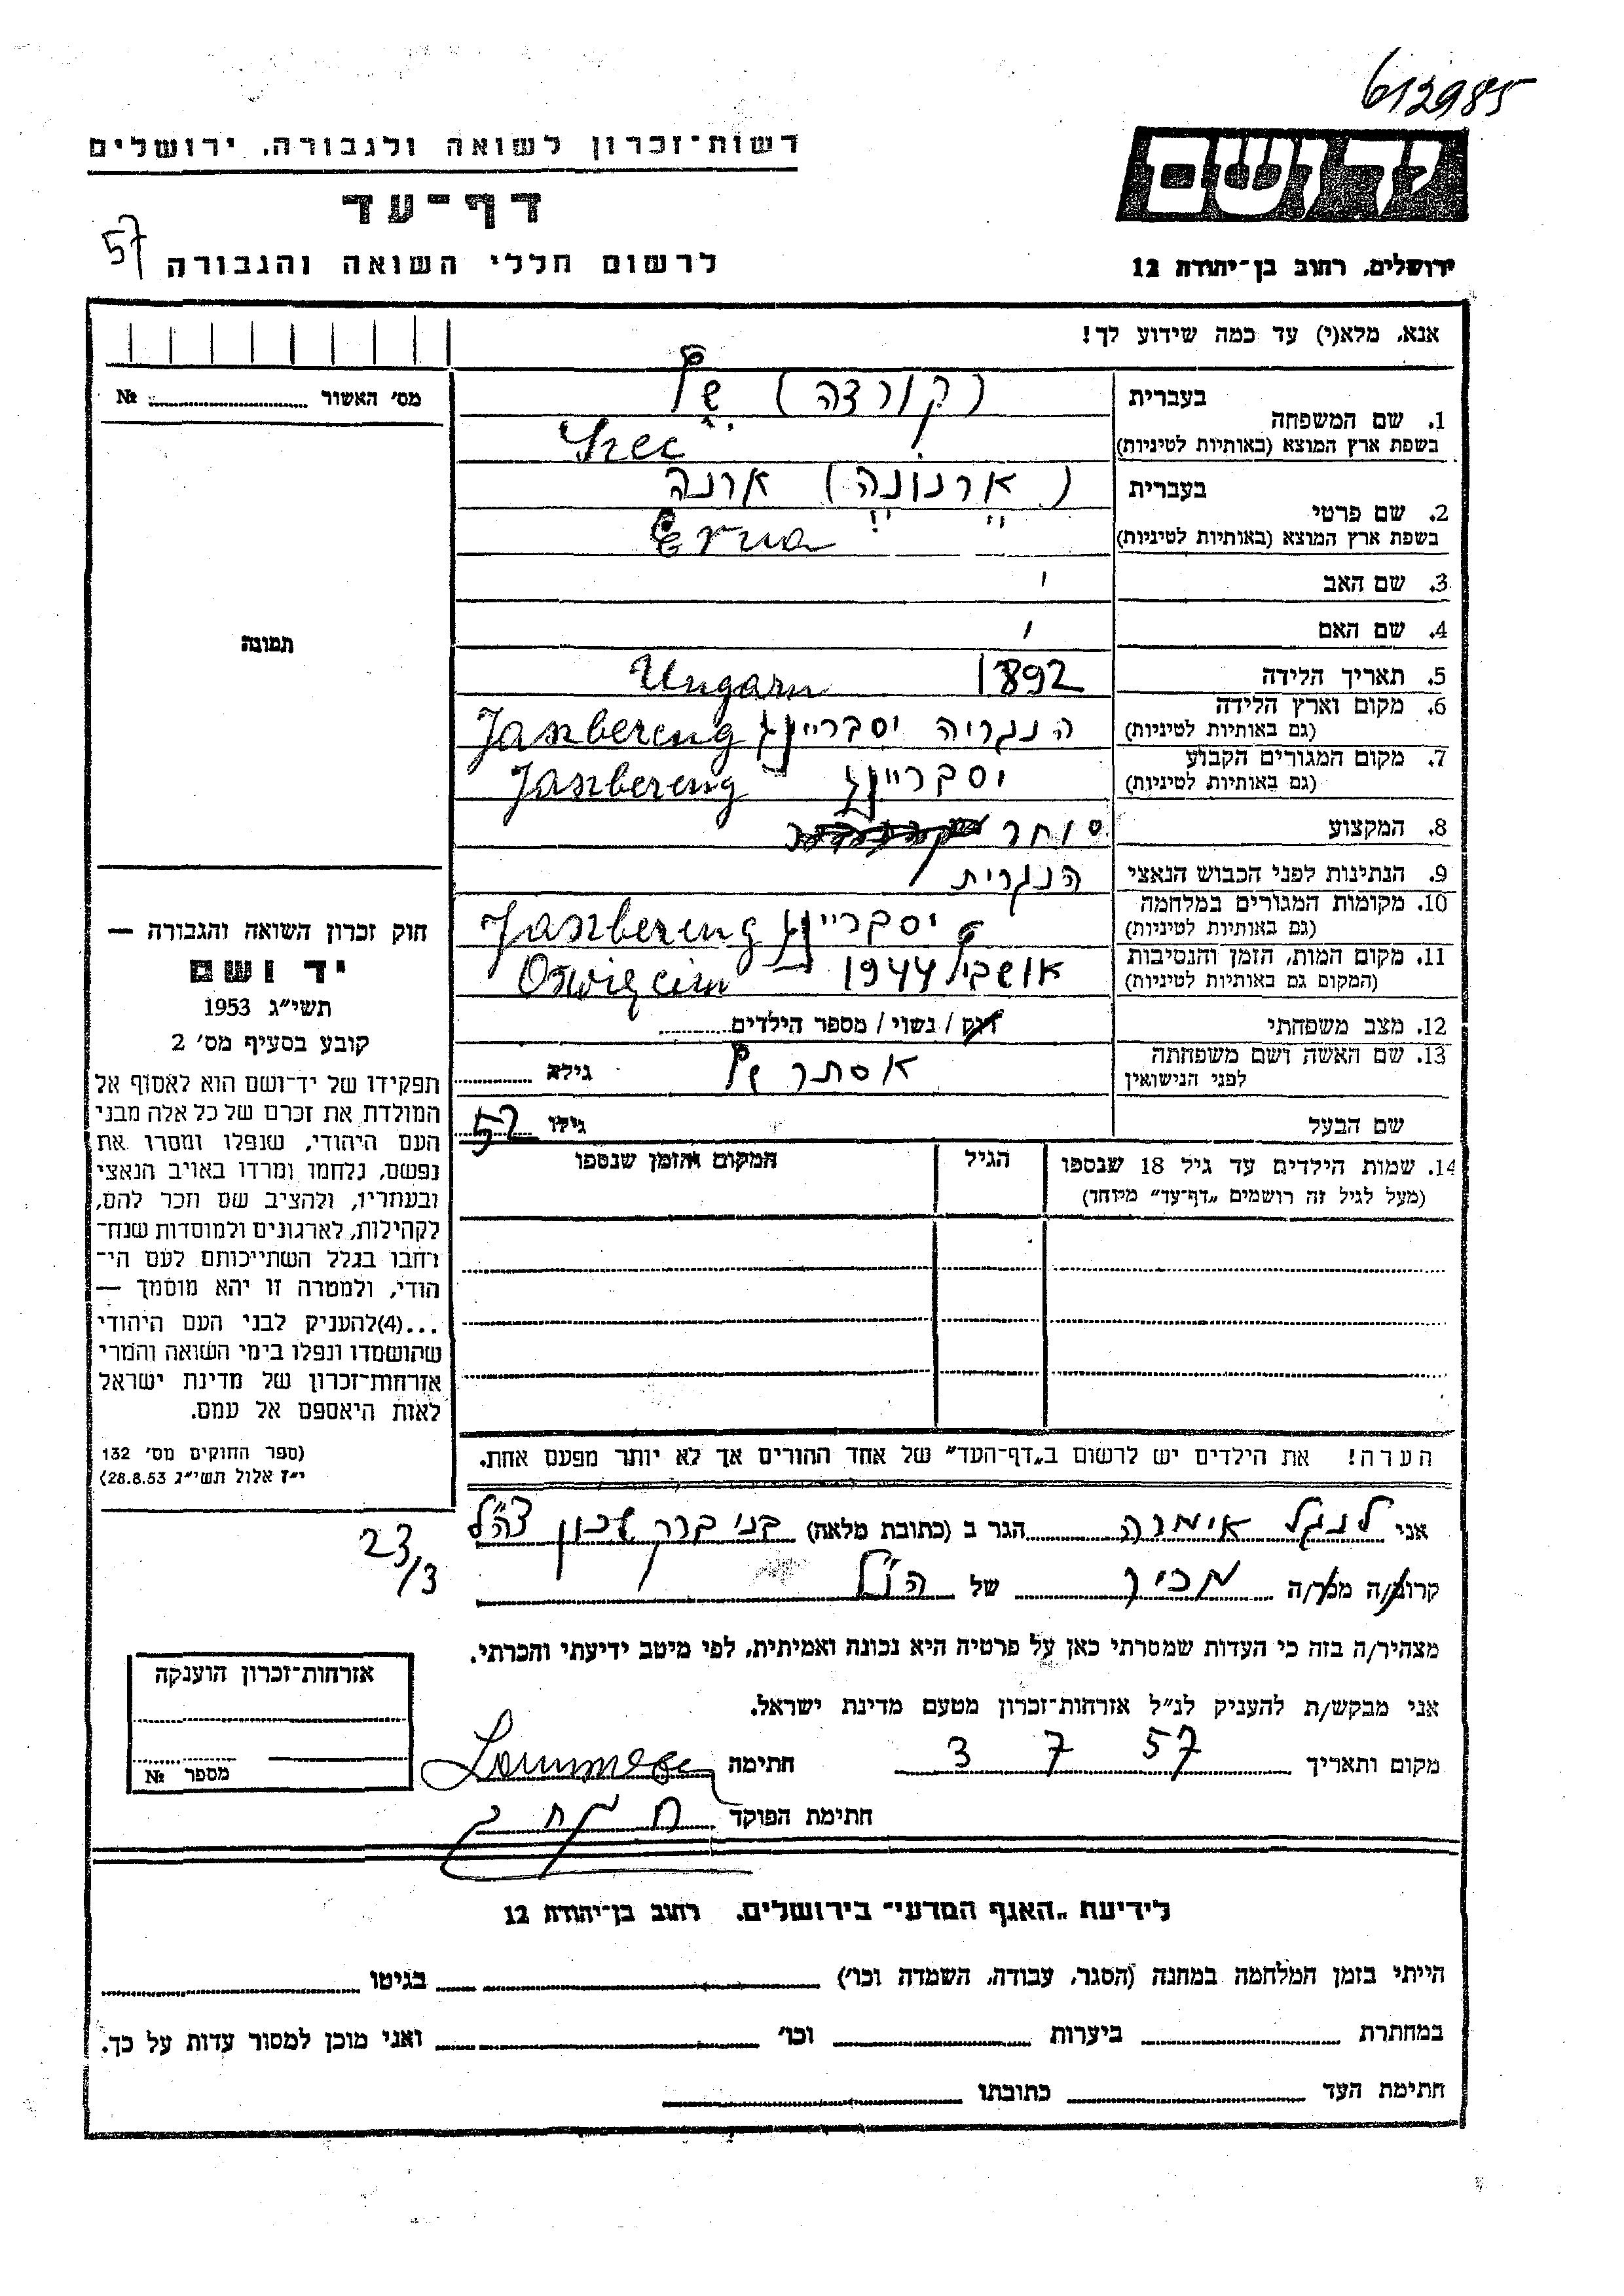 612985
רשות־זכרון לשואה ולגבורה, ירושלים
דף־עד
57
לרשום חללי השואה והגבורה
יד ושם
ירושלים, רחוב בן־יהודה 12
אנא, מלא(י) עד כמה שידוע לך!
מס׳ האשור № ....................
תמונה
1. שם המשפחה
בעברית
(קורצה)
בשפת ארץ המוצא (באותיות לטיניות)
2. שם פרטי
בעברית
(ארנונה) ארנה
בשפת ארץ המוצא (באותיות לטיניות)
Erna
3. שם האב
4. שם האם
5. תאריך הלידה 1892 Ungarn
6. מקום וארץ הלידה
(גם באותיות לטיניות)
הנגריה Jaszbereng
7. מקום המגורים הקבוע
(גם באותיות לטיניות)
Jaszbereng
8. המקצוע סוחר
9. הנתינות לפני הכבוש הנאצי הנגרית
10. מקומות המגורים במלחמה
(גם באותיות לטיניות)
Jaszbereng
11. מקום המות, הזמן והנסיבות
(המקום גם באותיות לטיניות)
1944
12. מצב משפחתי רווק / נשוי / מספר הילדים
13. שם האשה ושם משפחתה
לפני הנישואין
אסתר גילה
שם הבעל גילו 52
14. שמות הילדים עד גיל 18 שנספו
(מעל לגיל זה רושמים „דף־עד״ מיוחד)
הגיל
המקום והזמן שנספו
חוק זכרון השואה והגבורה —
יד ושם
תשי״ג 1953
קובע בסעיף מס׳ 2
תפקידו של יד־ושם הוא לאסוף אל
המולדת את זכרם של כל אלה מבני
העם היהודי, שנפלו ומסרו את
נפשם, נלחמו ומרדו באויב הנאצי
ובעוזריו, ולהציב שם וזכר להם,
לקהילות, לארגונים ולמוסדות שנח־
רחבו בגלל השתייכותם לעם הי־
הודי, ולמטרה זו יהא מוסמך —
...(4)להעניק לבני העם היהודי
שהושמדו ונפלו בימי השואה והמרי
אזרחות־זכרון של מדינת ישראל
לאות היאספם אל עמם.
(ספר החוקים מס׳ 132
י״ז אלול תשי״ג 28.8.53)
הערה! את הילדים יש לרשום ב„דף־העד״ של אחד ההורים אך לא יותר מפעם אחת.
23/3
אני לנגל הגר ב (כתובת מלאה) בני ברק שכון צה״ל
קרוב/ה מכר/ה מכיר של הנ״ל
מצהיר/ה בזה כי העדות שמסרתי כאן על פרטיה היא נכונה ואמיתית, לפי מיטב ידיעתי והכרתי.
אני מבקש/ת להעניק לנ״ל אזרחות־זכרון מטעם מדינת ישראל.
מקום ותאריך 3 7 57 חתימה
חתימת הפוקד
אזרחות־זכרון הוענקה
מספר №
לידיעת „האגף המדעי״ בירושלים, רחוב בן־יהודה 12
הייתי בזמן המלחמה במחנה (הסגר, עבודה, השמדה וכו׳) בגיטו
במחתרת ביערות וכו׳ ואני מוכן למסור עדות על כך.
חתימת העד כתובתו